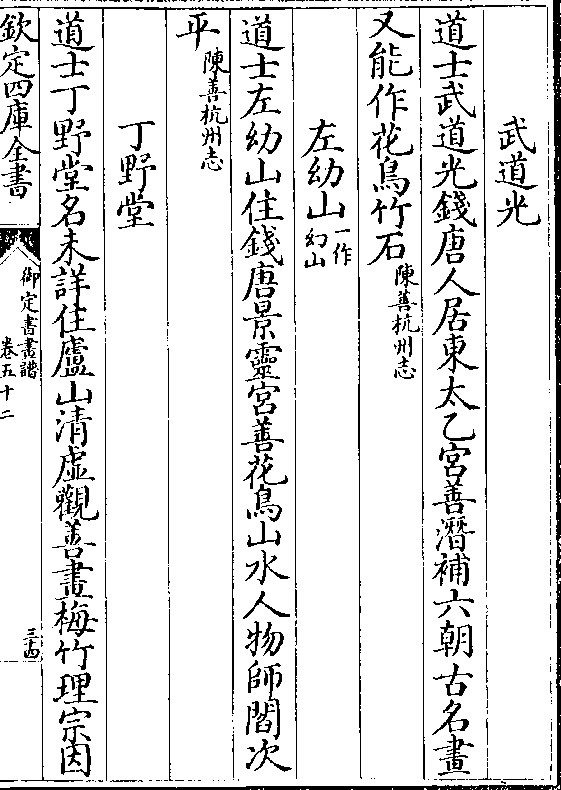 武道光
道士武道光錢唐人居東太乙宮善潛補六朝古名畫
又能作花鳥竹石陳善杭州志
左幼山一作幻山
道士左幼山住錢唐景靈宮善花鳥山水人物師閻次
平陳善杭州志
丁野堂
道士丁野堂名未詳住廬山清虛觀善畫梅竹理宗因
欽定四庫全書
御定書畫譜
卷五十二
三四